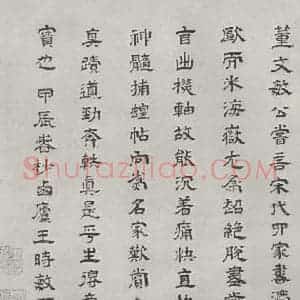 董文敏公嘗言宋代四家書濃
歐而米海嶽尤為超絕脫盡
自出機軸故能沉着痛快直
神髓捕蝗帖向為名家歎賞
真蹟遒勁奔軼真是平生得意
寶也甲辰春下王時敏
Shufaziliao.com